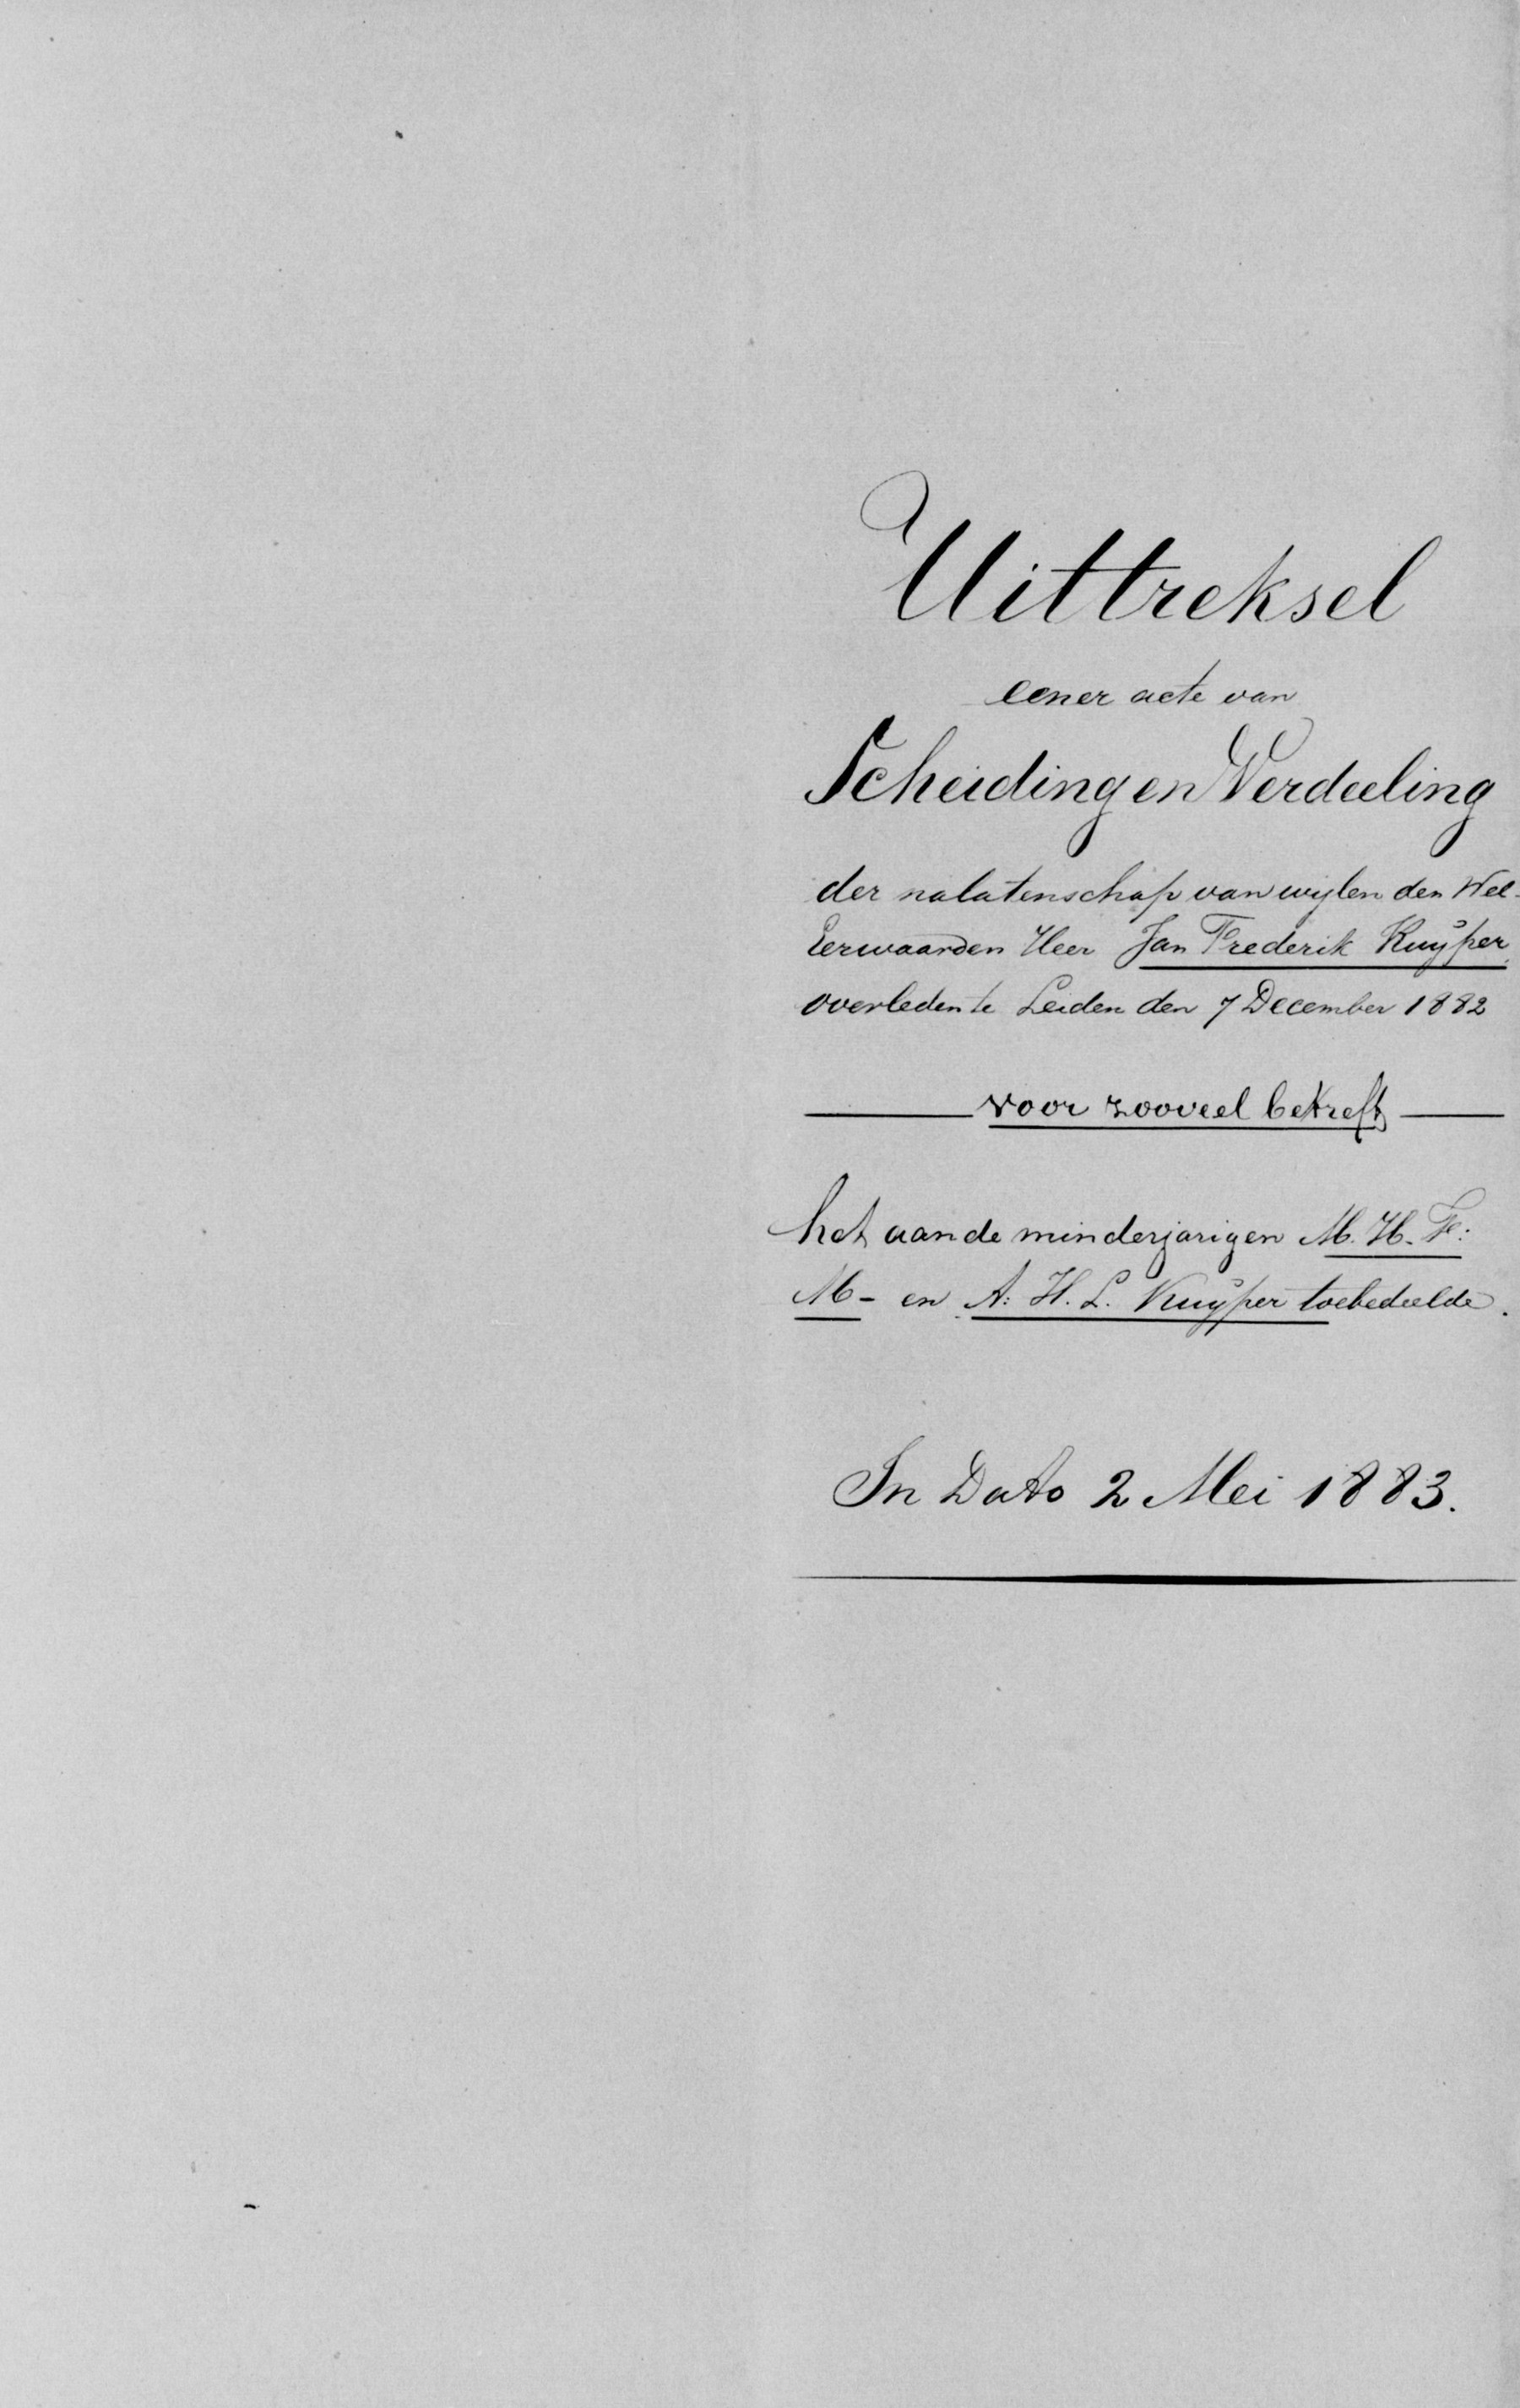 Uittreksel
eener acte van
Scheiding en Verdeeling
der nalatenschap van wijlen den Wel-
Eerwaarden Heer Jan Frederik Kuÿper
overleden te Leiden den 7 December 1882
voor zooveel betreft
het aan de minderjarigen M. H. F:
M- en A: H. L. Kuÿper toebedeelde.
In Dato 2 Mei 1883.